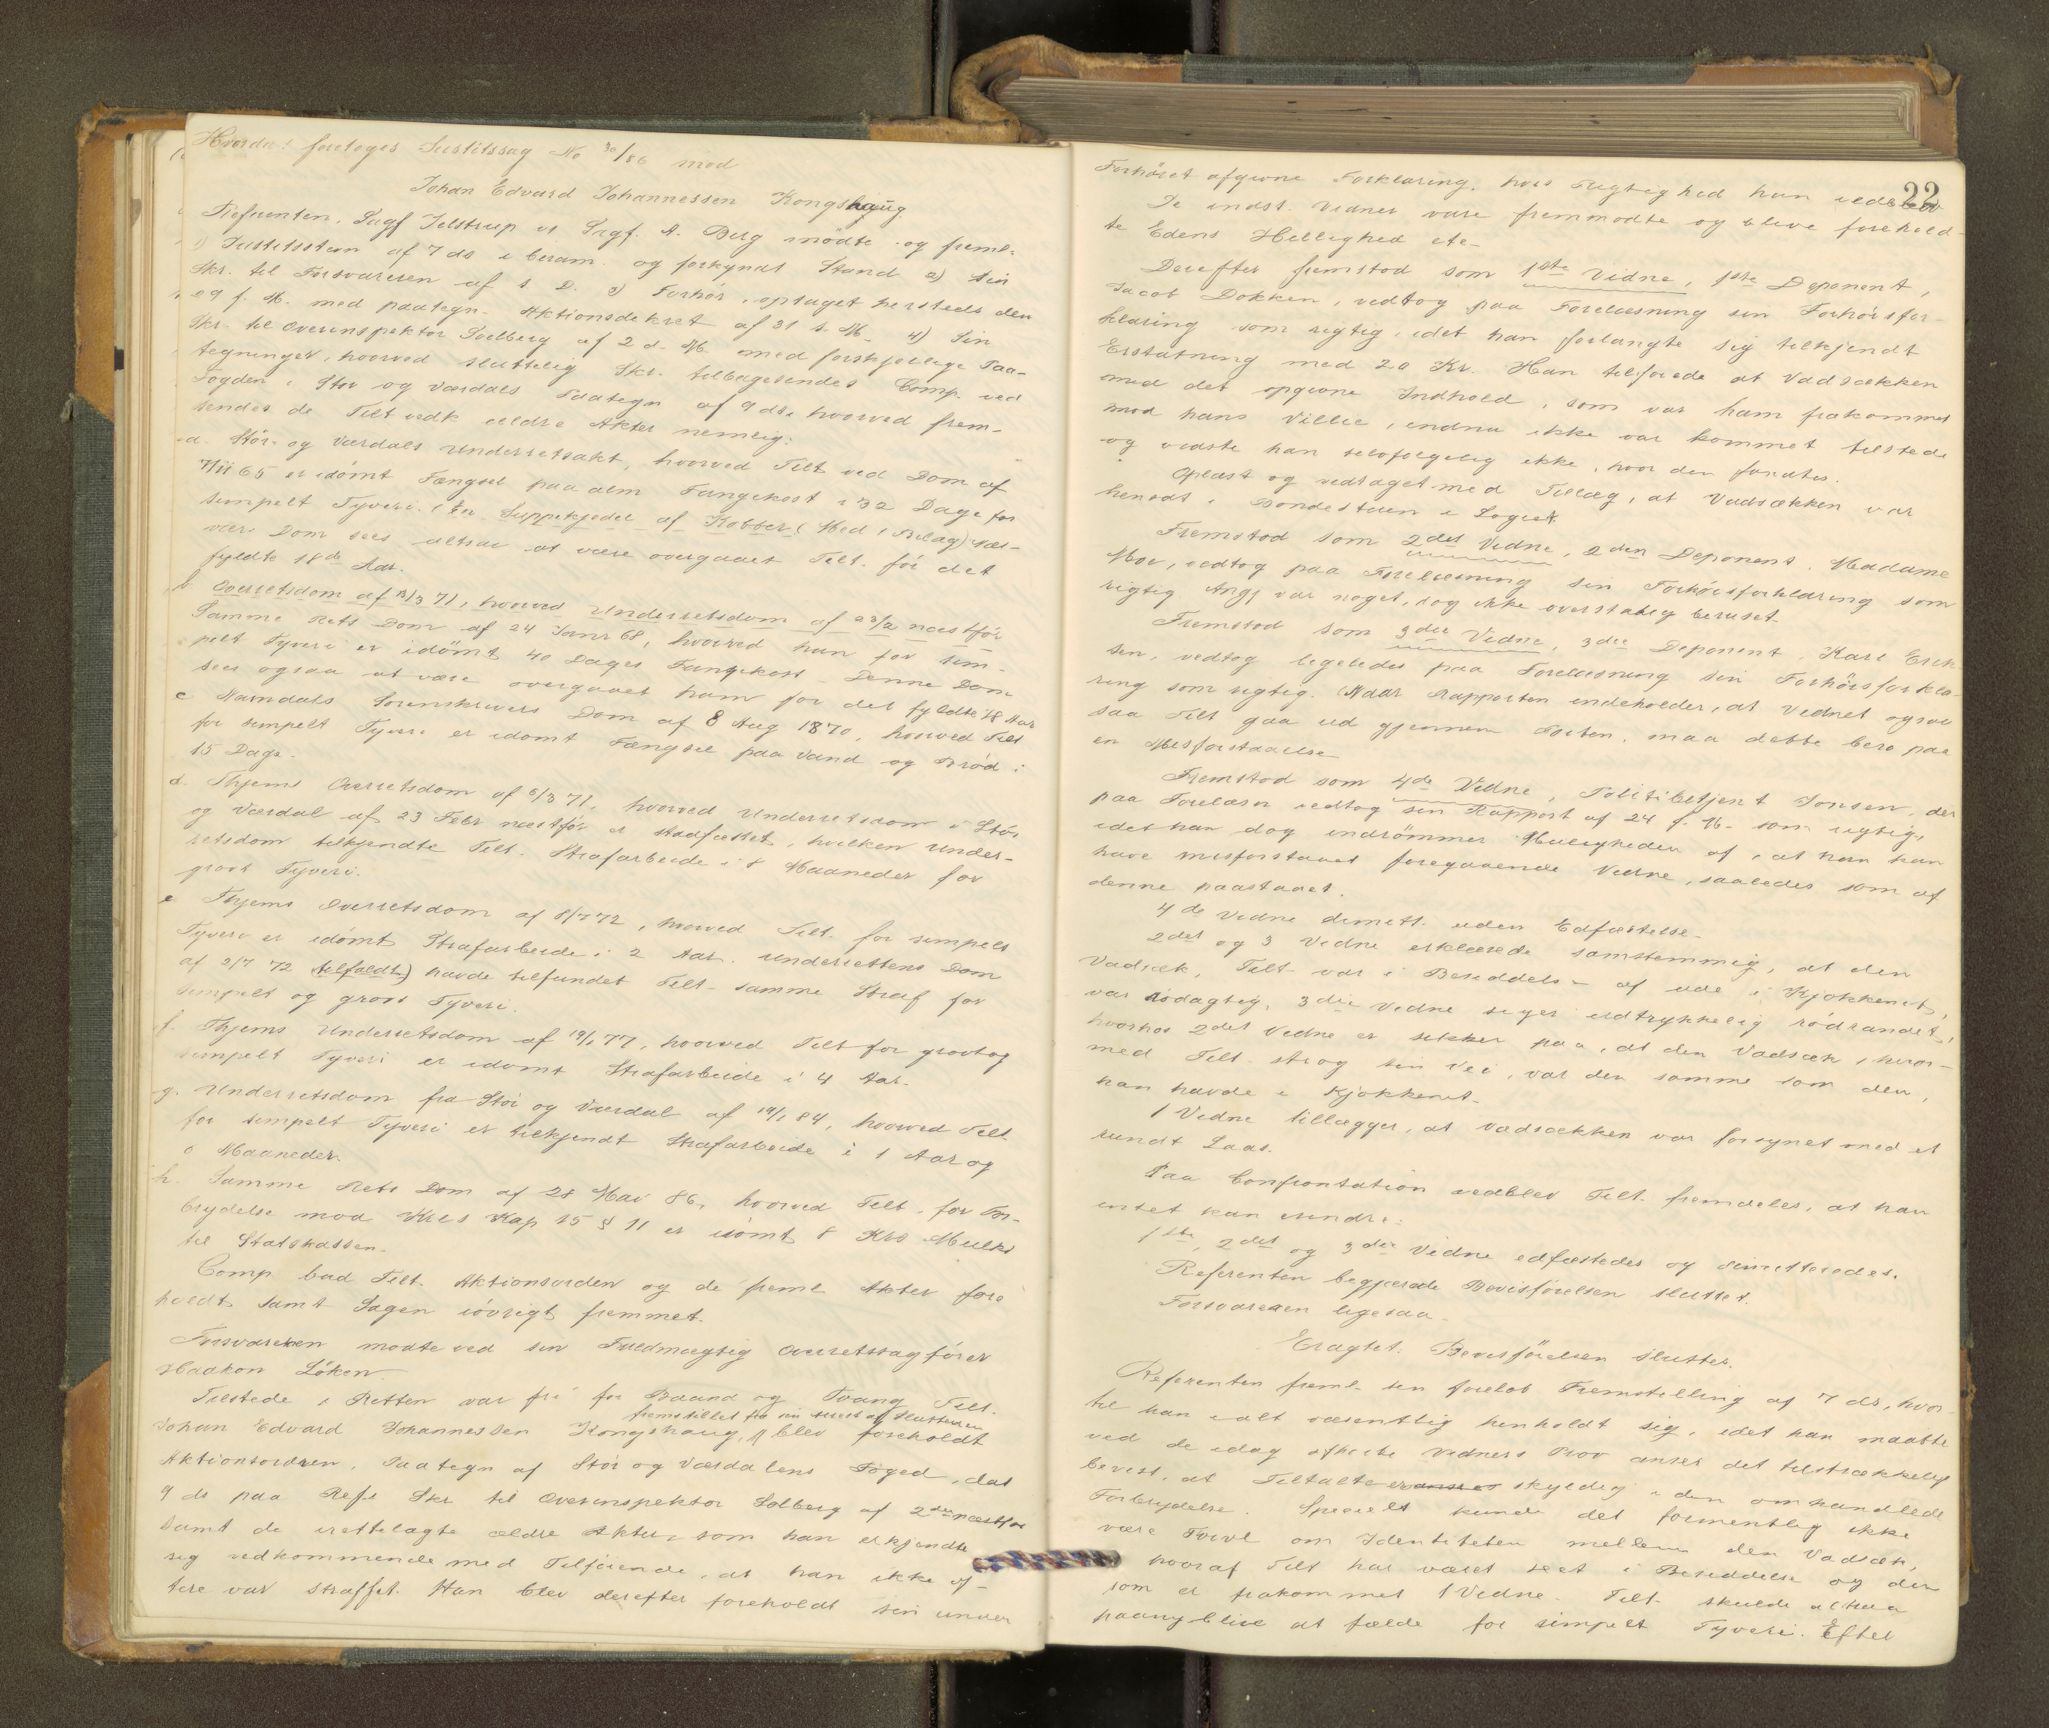 Hvorda: foretoges Justitssag No 30/86 mod
Johan Edvard Johannessen Kongshaug
Referenten, Sagf Jelstrup v Sagf. A. Berg mödte og freml.
1) Justitsstevn af 7 ds i beram. og forkyndt Stand 2) Sin
Skr. til Forsvareren af s. D. 3) Forhör, optaget hersteds den
29 f. M. med paategn. Aktionsdekret af 31 s. M. 4) Sin
Skr. til Overinspektör Solberg af 2 d. M. med forskjellige Paa-
tegninger, hvorved sluttelig Skr. tilbagesendes Comp. ved
Fogden i Stör og Værdals Paategn af 9 ds. hvorved frem-
sendes de Tilt vedk ældre Akter nemlig:
a. Stör- og Værdals Underretsakt, hvorved Tilt ved Dom af
7/11 65 er idömt Fængsel paa alm Fangekost i 32 Dage for
simpelt Tyveri. (En Suppekjedel af Kobber) (Med 1 Bilag) Næv-
være Dom sees altsaa at være overgaaet Tilt. för det
fyldte 18de Aar.
b Overretsdom af 13/3 71, hvorved Underretsdom af 23/2 næstför
Samme Rets Dom af 24 Janr 68, hvorved han for sim-
pelt Tyveri er idömt 40 Dages Fangekost - Denne Dom
sees ogsaa at være overgaaet ham for det fyldte 18 Aar
c Namdals Sorenskrivers Dom af 8 Aug 1870, hvorved Tilt
for simpelt Tyveri er idömt Fængsel paa Vand og Bröd i
15 Dage.
d. Thjems Overretsdom af 6/3 71, hvorved Underretsdom i Stör
og Værdal af 23 Febr næstför er stadfæstet, hvilken Under-
retsdom tilkjendte Tilt. Strafarbeide i 8 Maaneder for
grovt Tyveri.
e Thjems Overretsdom af 8/7 72, hvorved Tilt. for simpelt
Tyveri er idömt Strafarbeide i 2 Aar. Underrettens Dom
af 2/7 72 (tilfaldt) havde tilfundet Tilt- samme Straf for
simpelt og grovt Tyveri.
f. Thjems Underretsdom af 19/1 77, hvorved Tilt for grovt og
simpelt Tyveri er idömt Strafarbeide i 4 Aar-
g. Underretsdom fra Stör og Værdal af 19/1 84, hvorved Tilt
for simpelt Tyveri er tilkjendt Strafarbeide i 1 Aar og
6 Maaneder.
h. Samme Rets Dom af 28 Mai 86, hvorved Tilt. for For-
brydelse mod Krls Kap 15 § 11 er idömt 8 Krs Mulkt
til Statskassen-
Comp bad Tilt. Aktionsorden og de freml Akter fore
holdt samt Sagen iövrigt fremmet.
Forsvareren mödte ved sin Fuldmægtig Overretssagförer
Haakon Löken
Tilstede i Retten var fri for Baand og Tvang Tilt.
fremstillet fra sin Arrest af Slutteren
Johan Edvard Johannessen Kongshaug, blev foreholdt
Aktionsordren, Paategn af Stör og Værdalens Foged, dat
9 ds paa Refs Skr til Overinspektör Solberg af 2den næstför
samt de irettelagte ældre Akter, som han erkjendte
sig vedkommende med Tilföiende, at han ikke of-
tere var straffet. Han blev derefter foreholdt sin under
22
Forhöret afgivne Forklaring, hvis Rigtighed han vedblev
De indst. Vidner vare fremmödte og bleve forehold-
te Edens Hellighed etc-
Derefter fremstod som 1ste Vidne, 1ste Deponent,
Jacob Dokken, vedtog paa Forelæsning sin Forhörsfor-
klaring som rigtig, idet han forlangte sig tilkjendt
Erstatning med 20 Kr. Han tilföiede at Vadsækken
med det opgivne Indhold, som var ham frakommet
mod hans Villie, endnu ikke var kommet tilstede
og vidste han selvfölgelig ikke, hvor den fandtes.
Oplæst og vedtaget med Tillæg, at Vadsækken var
hensat i Bondestuen i Logiet
Fremstod som 2det Vidne, 2den Deponent, Madame
Moe, vedtog paa Forelæsning sin Forhörsforklaring som
rigtig Angj var noget, dog ikke overstadig beruset-
Fremstod som 3die Vidne, 3die Deponent, Karl Erik-
sen, vedtog ligeledes paa Forelæsning sin Forhörsforkla-
ring som rigtig. Naar Rapporten indeholder, at Vidnet ogsaa
saa Tilt gaa ud gjennem Porten, maa dette bero paa
en Misforstaaelse
Fremstod som 4de Vidne, Politibetjent Jonsen, der
paa Forelæsn vedtog sin Rapport af 24 f. M- som rigtig,
idet han dog indrömmer Muligheden af, at han kan
have misforstaaet foregaaende Vidne, saaledes som af
denne paastaaet.
4de Vidne dimitt. uden Edfæstelse-
2det og 3 Vidne erklærede samstemmig, at den
Vadsæk, Tilt- var i Besiddelse af ude i Kjökkenet,
var rödagtig, 3die Vidne siger udtrykkelig rödrandet,
hvorhos 2det Vidne er sikker paa, at den Vadsæk, hvor-
med Tilt- strög sin Vei, var den samme som den,
han havde i Kjökkenet-
1 Vidne tillægger, at Vadsækken var forsynet med et
rundt Laas.
Paa Confrontation vedblev Tilt. fremdeles, at han
intet kan erindre.
1ste, 2det og 3die Vidne edfæstedes og dimitteredes.
Referenten begjærede Bevisförelsen sluttet.
Forsvareren ligesaa-
Eragtet: Bevisförelsen sluttes.
Referenten freml- sin foreløb Fremstilling af 7 ds, hvor-
til han i alt væsentlig henholdt sig, idet han maatte
ved de idag afhörte Vidners Prov anser det tilstrækkelig
bevist, at Tiltalte er skyldig i den omhandlede
Forbrydelse. Specielt kunde det formentlig ikke
være Tvivl om Identiteten mellem den Vadsæk,
hvoraf Tilt har været seet i Besiddelse og den
som er frakommet 1 Vidne. Tilt- skulde altsaa
paany blive at fælde for simpelt Tyveri. Efter